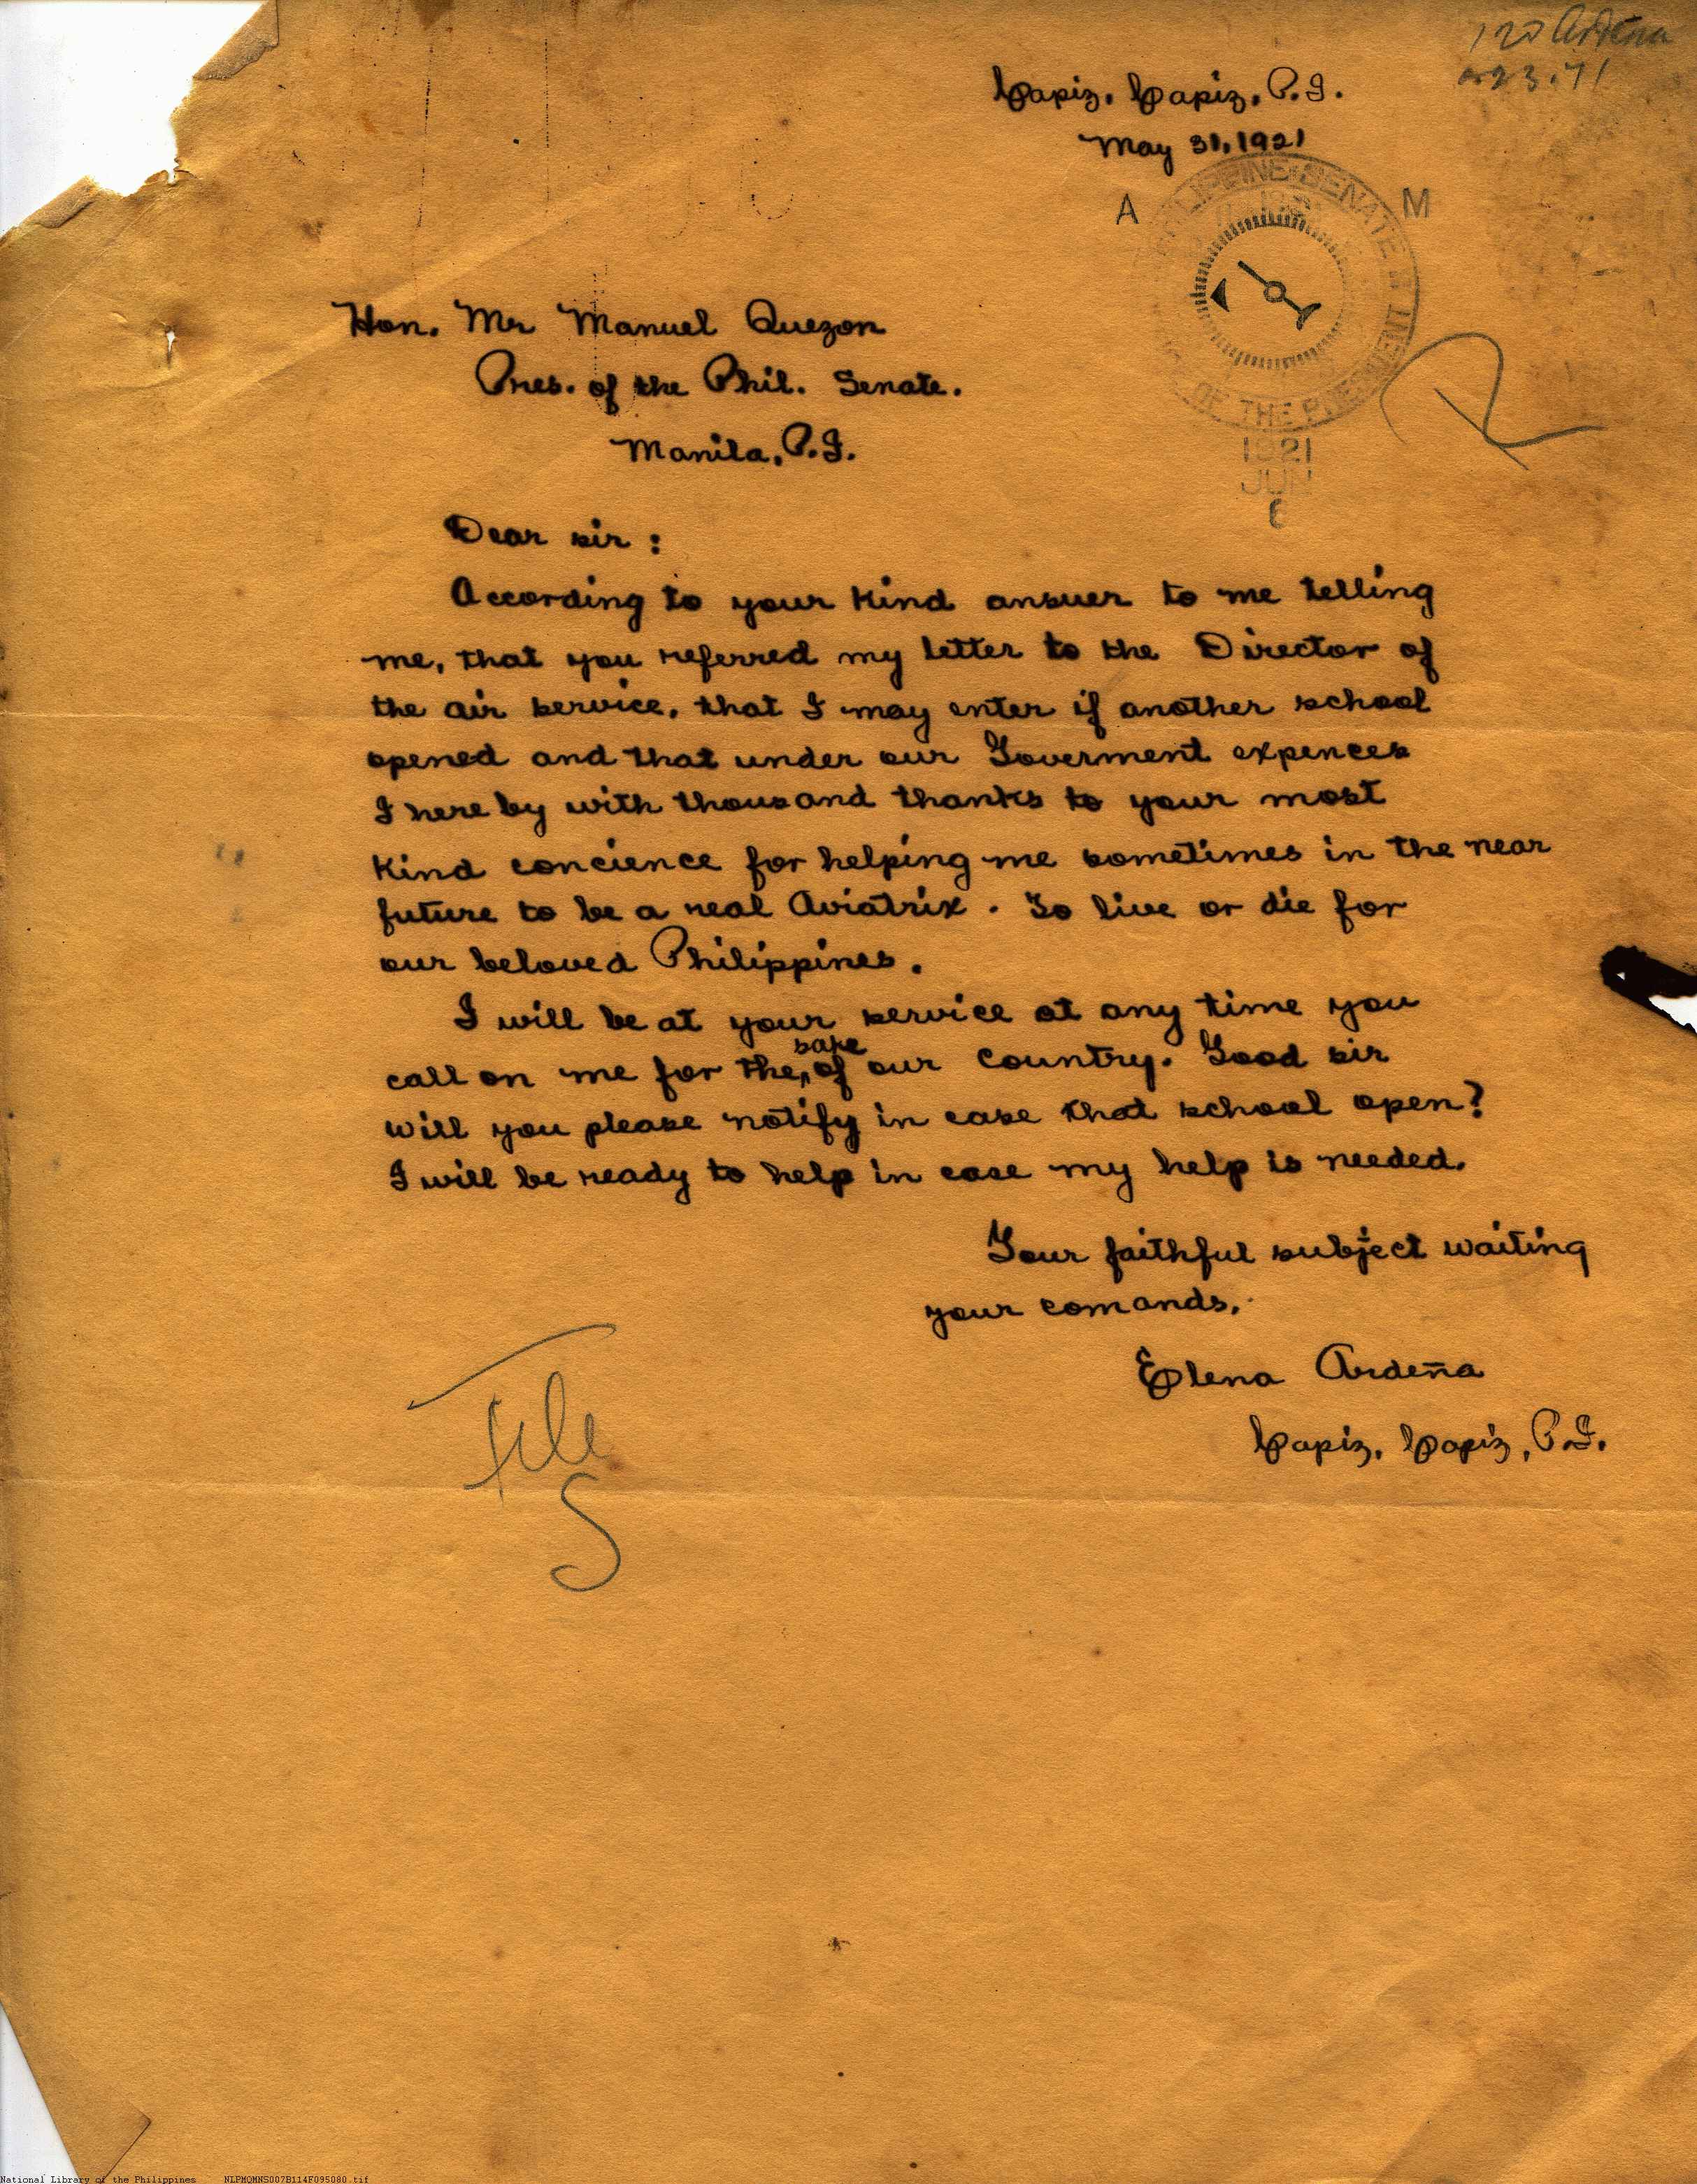 120 Ardeña
23.71
Capiz, Capiz, P.I.
May 31, 1921
A M
PHILIPPINE SENATE
OF THE PRESIDENT
1921
JUN
6
Hon. Mr Manuel Quezon
Pres. of the Phil. Senate.
Manila, P.I.
Dear sir :
According to your kind ansuer to me telling
me, that you referred my letter to the Director of
the air service, that I may enter if another school
opened and that under our Goverment expences
I here by with thousand thanks to your most
kind concience for helping me sometimes in the near
future to be a real Aviatrix. To live or die for
our beloved Philippines.
I will be at your service at any time you
call on me for the sake of our Country. Good sir
will you please notify in case that school open?
I will be ready to help in case my help is needed.
Your faithful subject waiting
your comands,
Elena Ardeña
Capiz, Capiz, P.I.
File
S
National Library of the Philippines NLPMQMNS007B114F095080.tif